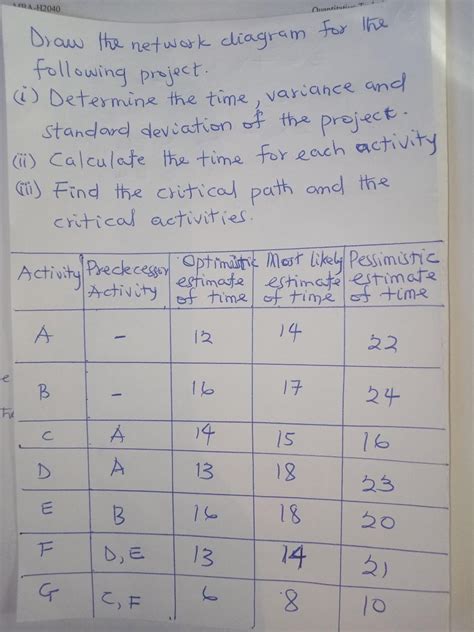 MBA-H2040
Draw the network diagram for the
following project.
(i) Determine the time, variance and
standard deviation of the project.
(ii) Calculate the time for each activity
(iii) Find the critical path and the
critical activities.
Activity Predecessor Activity Optimistic estimate of time Most likely estimate of time Pessimistic estimate of time
A - 12 14 22
B - 16 17 24
C A 14 15 16
D A 13 18 23
E B 16 18 20
F D, E 13 14 21
G C, F 6 8 10